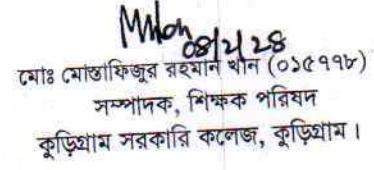 08/2/28
মোঃ মোস্তাফিজুর রহমান খান (০১৫৭৭৮)
সম্পাদক, শিক্ষক পরিষদ
কুড়িগ্রাম সরকারি কলেজ, কুড়িগ্রাম।